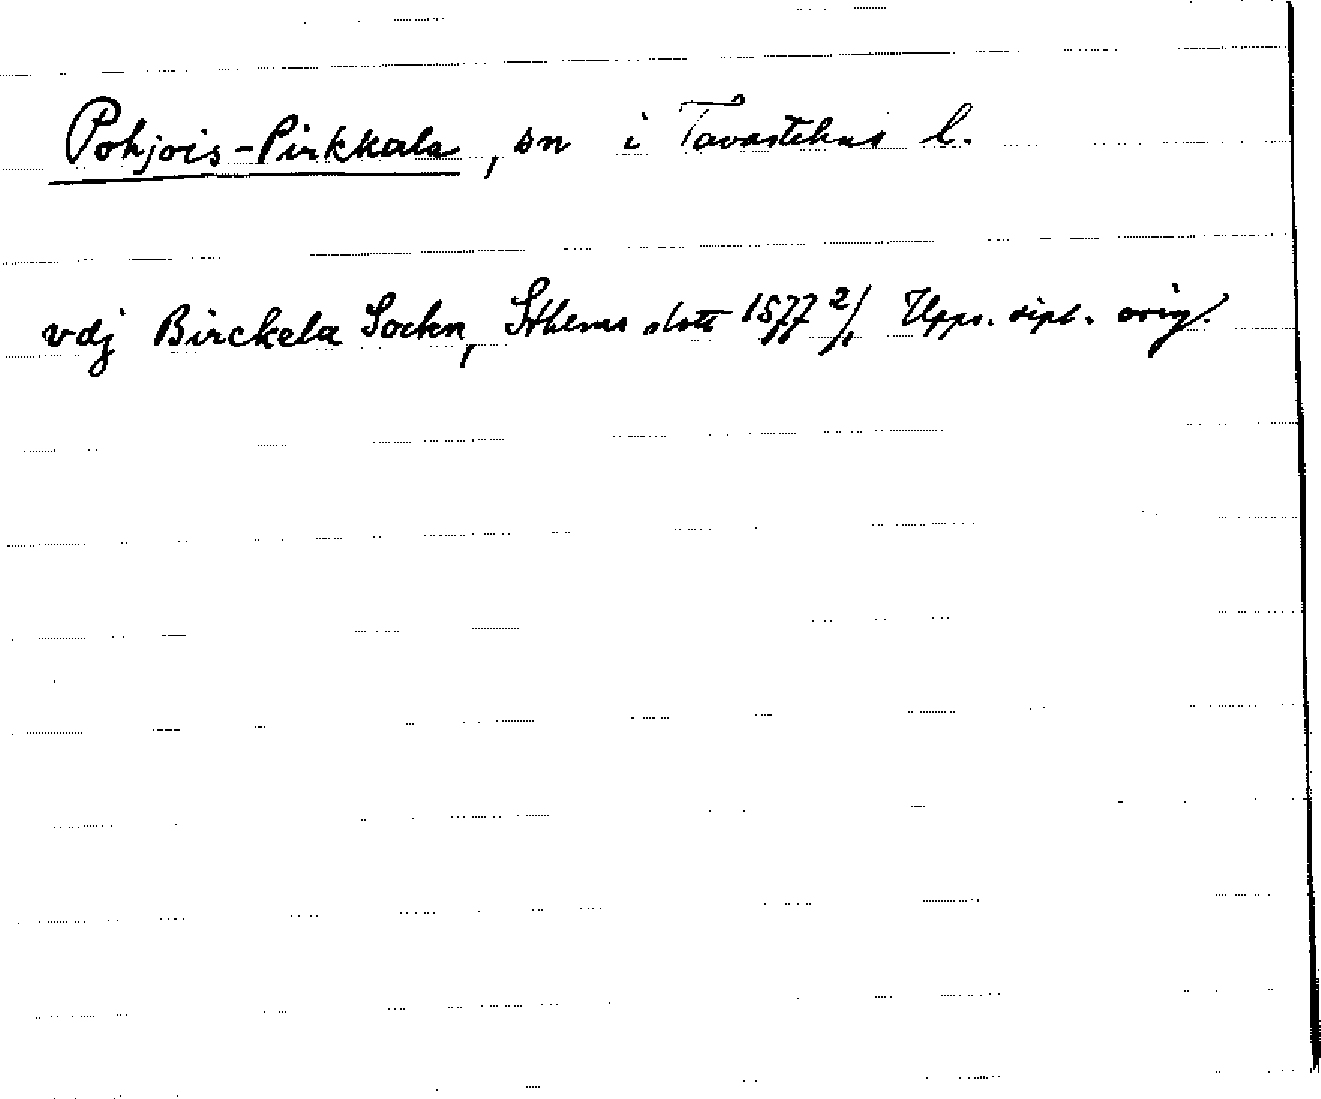 Pohjois-Pirkkala, sn i Tavastehus l.
vdj Birckela Sockn, Sthems slott 1577 2/1 Upps. dipl. orig.